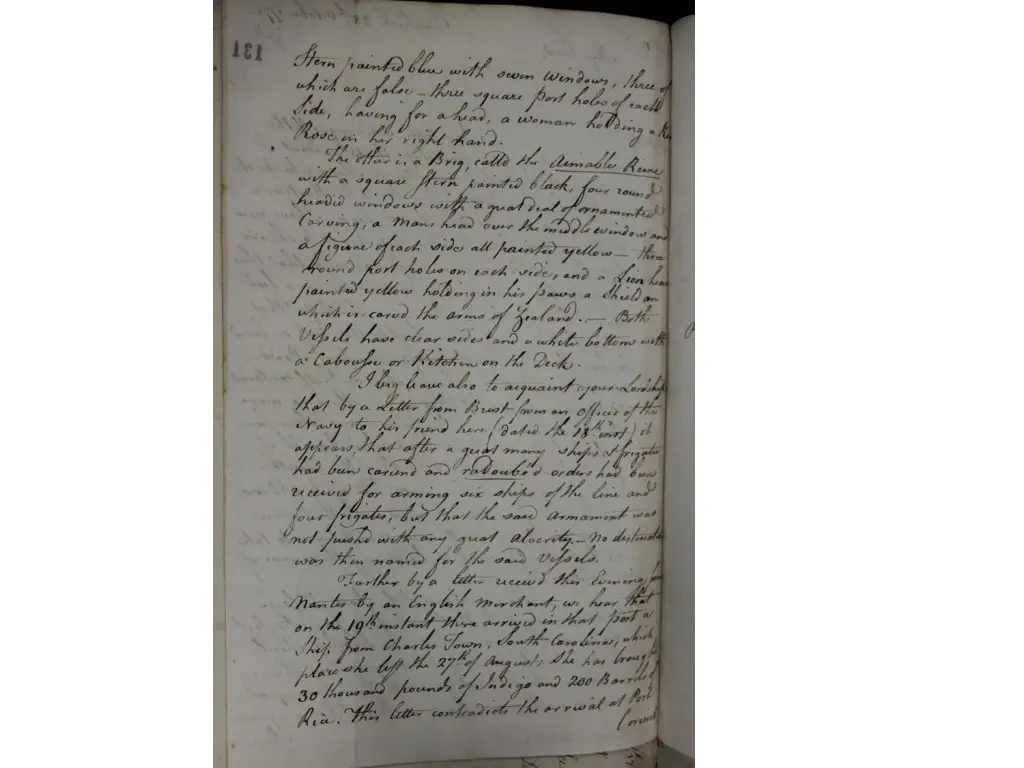 131
Stern painted blue with seven Windows, three of
which are false – three square port holes of each
Side, having for a head, a woman holding a
Rose in her right hand.
The other is a Brig, call'd the Aimable Reine
with a square Stern painted black, four round
headed windows with a great deal of ornamented
Carving, a Mans head over the middle window and
a figure of each side all painted yellow – three
round port holes on each side, and a Lion head
painted yellow holding in his paws a Shield on
which is carv'd the arms of Zealand. – Both
Vessels have clear sides and a white bottom with
a Cabousse or Kitchen on the Deck.
I beg leave also to acquaint your Lordship
that by a Letter from Brest from an officer of the
Navy to his friend here (dated the 18th inst) it
appears, that after a great many ships & frigates
had been careend and radoubéd orders had been
received for arming six ships of the line and
four frigates, but that the said armament was
not push'd with any great alacrity – no destination
was then named for the said Vessels.
Further by a letter receiv'd this Evening from
Nantes by an English Merchant, we hear that
on the 19th instant there arrived in that port a
Ship from Charles Town, South Carolina, which
place she left the 27th of August; she has brought
30 thousand pounds of Indigo and 200 Barrels of
Rice. This letter contradicts the arrival at Port